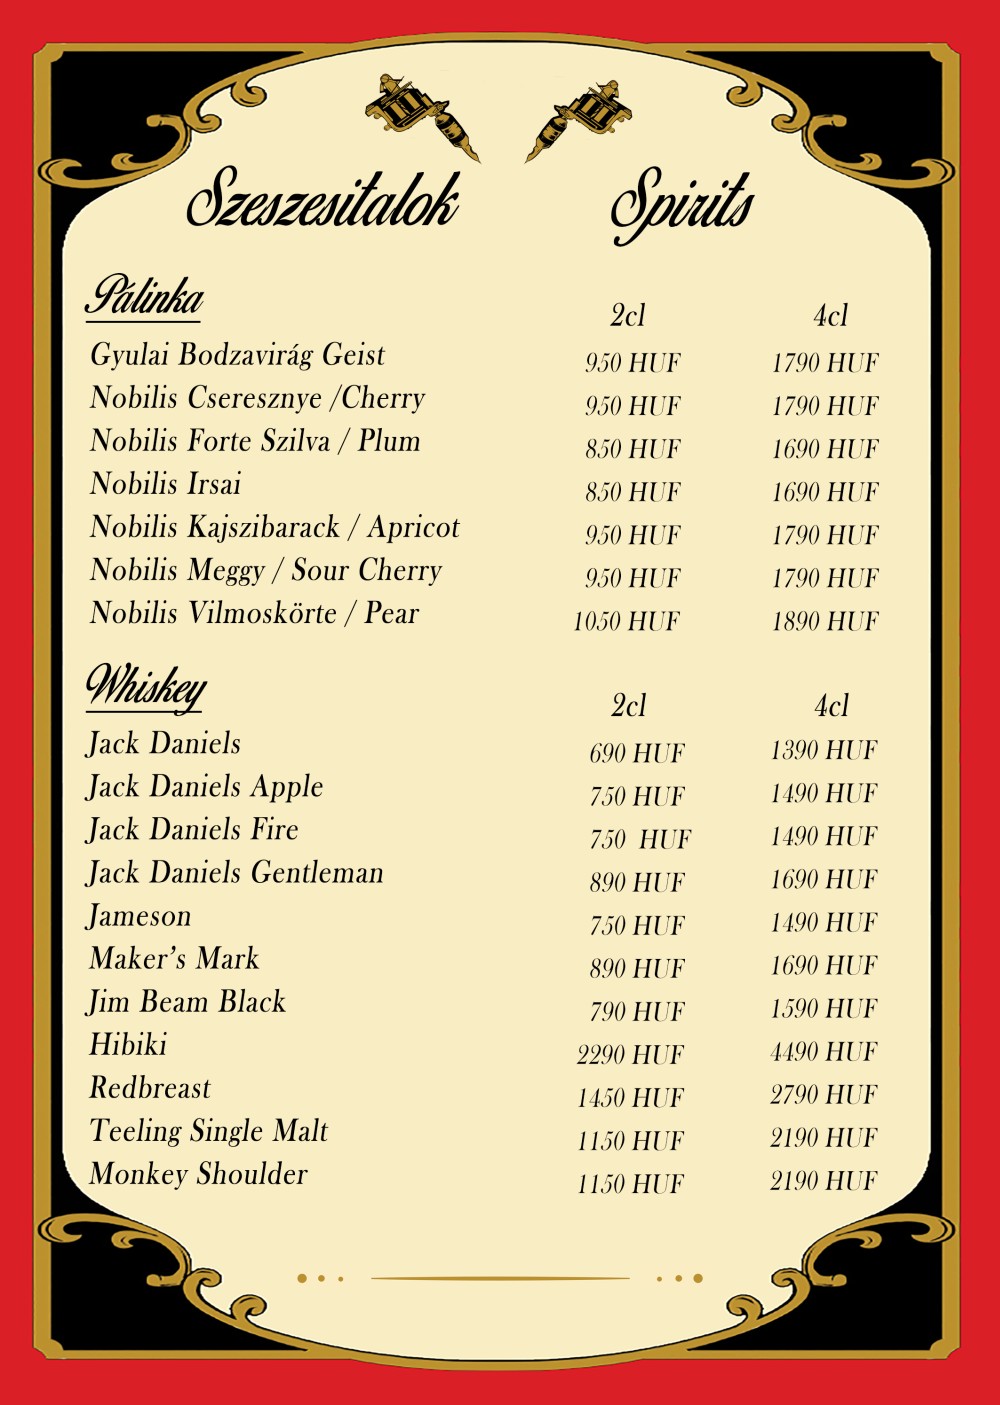 Szeszesitalok Spirits
Pálinka 2cl 4cl
Gyulai Bodzavirág Geist 950 HUF 1790 HUF
Nobilis Cseresznye /Cherry 950 HUF 1790 HUF
Nobilis Forte Szilva / Plum 850 HUF 1690 HUF
Nobilis Irsai 850 HUF 1690 HUF
Nobilis Kajszibarack / Apricot 950 HUF 1790 HUF
Nobilis Meggy / Sour Cherry 950 HUF 1790 HUF
Nobilis Vilmoskörte / Pear 1050 HUF 1890 HUF
Whiskey 2cl 4cl
Jack Daniels 690 HUF 1390 HUF
Jack Daniels Apple 750 HUF 1490 HUF
Jack Daniels Fire 750 HUF 1490 HUF
Jack Daniels Gentleman 890 HUF 1690 HUF
Jameson 750 HUF 1490 HUF
Maker's Mark 890 HUF 1690 HUF
Jim Beam Black 790 HUF 1590 HUF
Hibiki 2290 HUF 4490 HUF
Redbreast 1450 HUF 2790 HUF
Teeling Single Malt 1150 HUF 2190 HUF
Monkey Shoulder 1150 HUF 2190 HUF